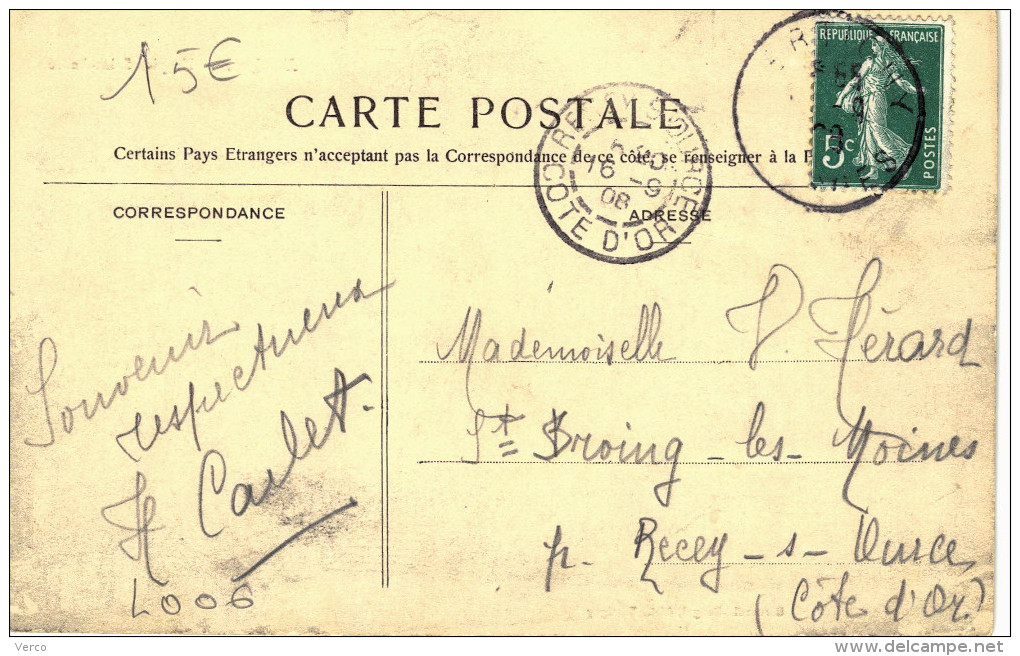 15€
CARTE POSTALE
Certains Pays Etrangers n'acceptant pas la Correspondance de ce côté, se renseigner à la P
CORRESPONDANCE
ADRESSE
REPUBLIQUE FRANÇAISE
5c
POSTES
RECEY-S-OURCE
16 -9
08
COTE D'OR
Souvenir
respectueux
H Carlet.
L006
Mademoiselle J. Hérard
St Broing-les-Moines
p. Recey-s-Ource
(Côte d'Or)
Verco
www.delcampe.net